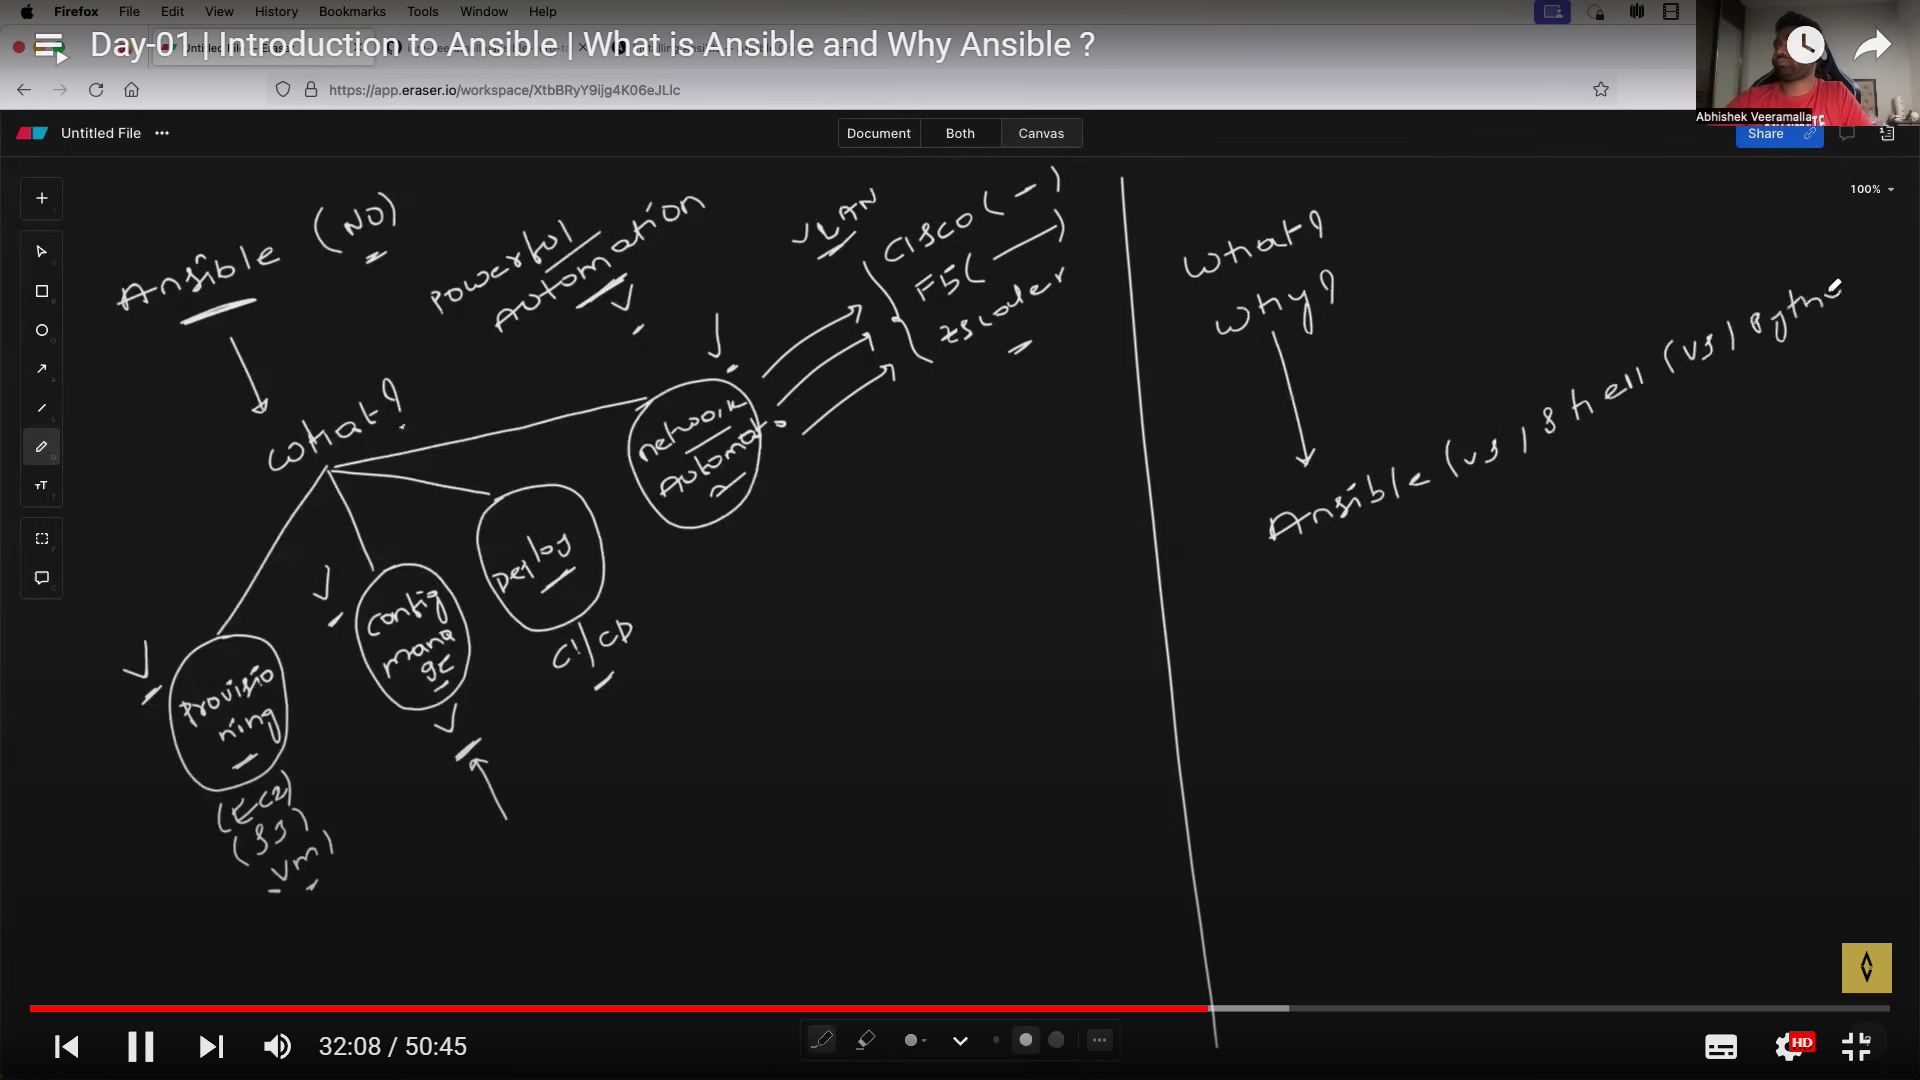 Firefox File Edit View History Bookmarks Tools Window Help
Day-01 | Introduction to Ansible | What is Ansible and Why Ansible ?
https://app.eraser.io/workspace/XtbBRyY9ijg4K06eJLlc
Abhishek Veeramalla
Untitled File ...
Document Both Canvas
Share
100%
Ansible (NO)
Powerful
Automation
VLAN
CISCO ( - )
F5( )
zscaler
What?
network
Automat
Deploy
CI/CD
Config
mana
ge
Provisio
ning
(EC2)
(S3)
Vm)
What?
Why?
Ansible (vs) shell (vs) Pytho
32:08 / 50:45
HD